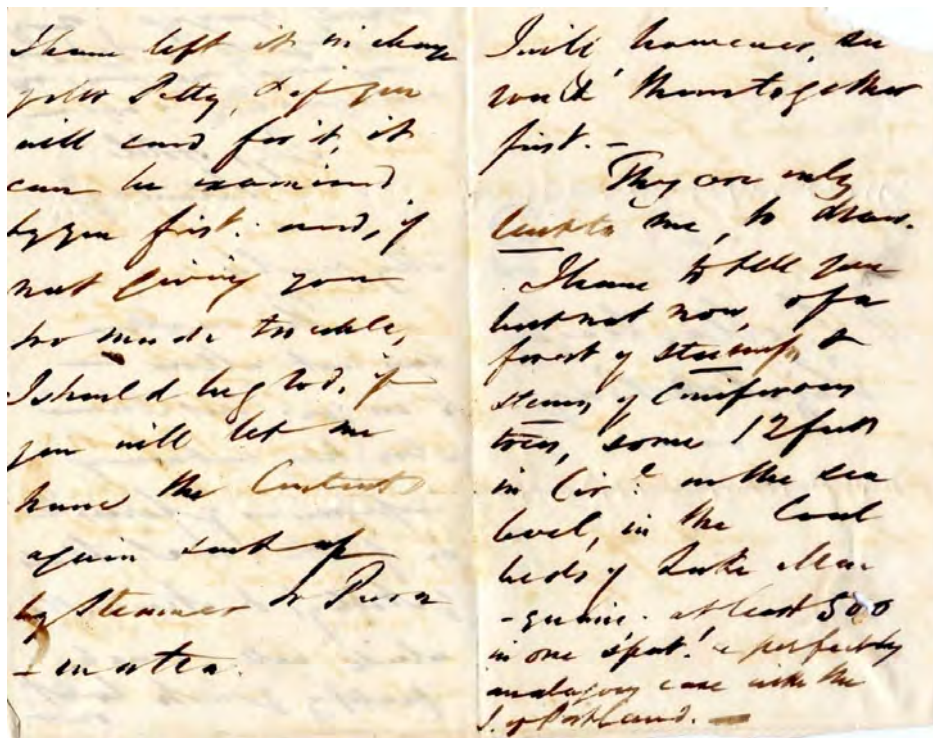 I have left it in charge
of Mr Petty, & if you
will send for it, it
can be examined
by you first. and, if
not giving you
too much trouble,
I should be glad, if
you will let me
have the Contents
again sent up
by Steamer to Parra
-matta.
I will, however, 
work them together
first. –
They are only
lent to me, to draw.
I have to tell you
but not now, of a
forest of stumps &
stems of Coniferous
trees, some 12 feet
in Circ.e on the sea
level, in the Coal
beds of Lake Mac
-quarie. at least 500
in one spot! a perfectly
analogous case with the
I. of Portland. —